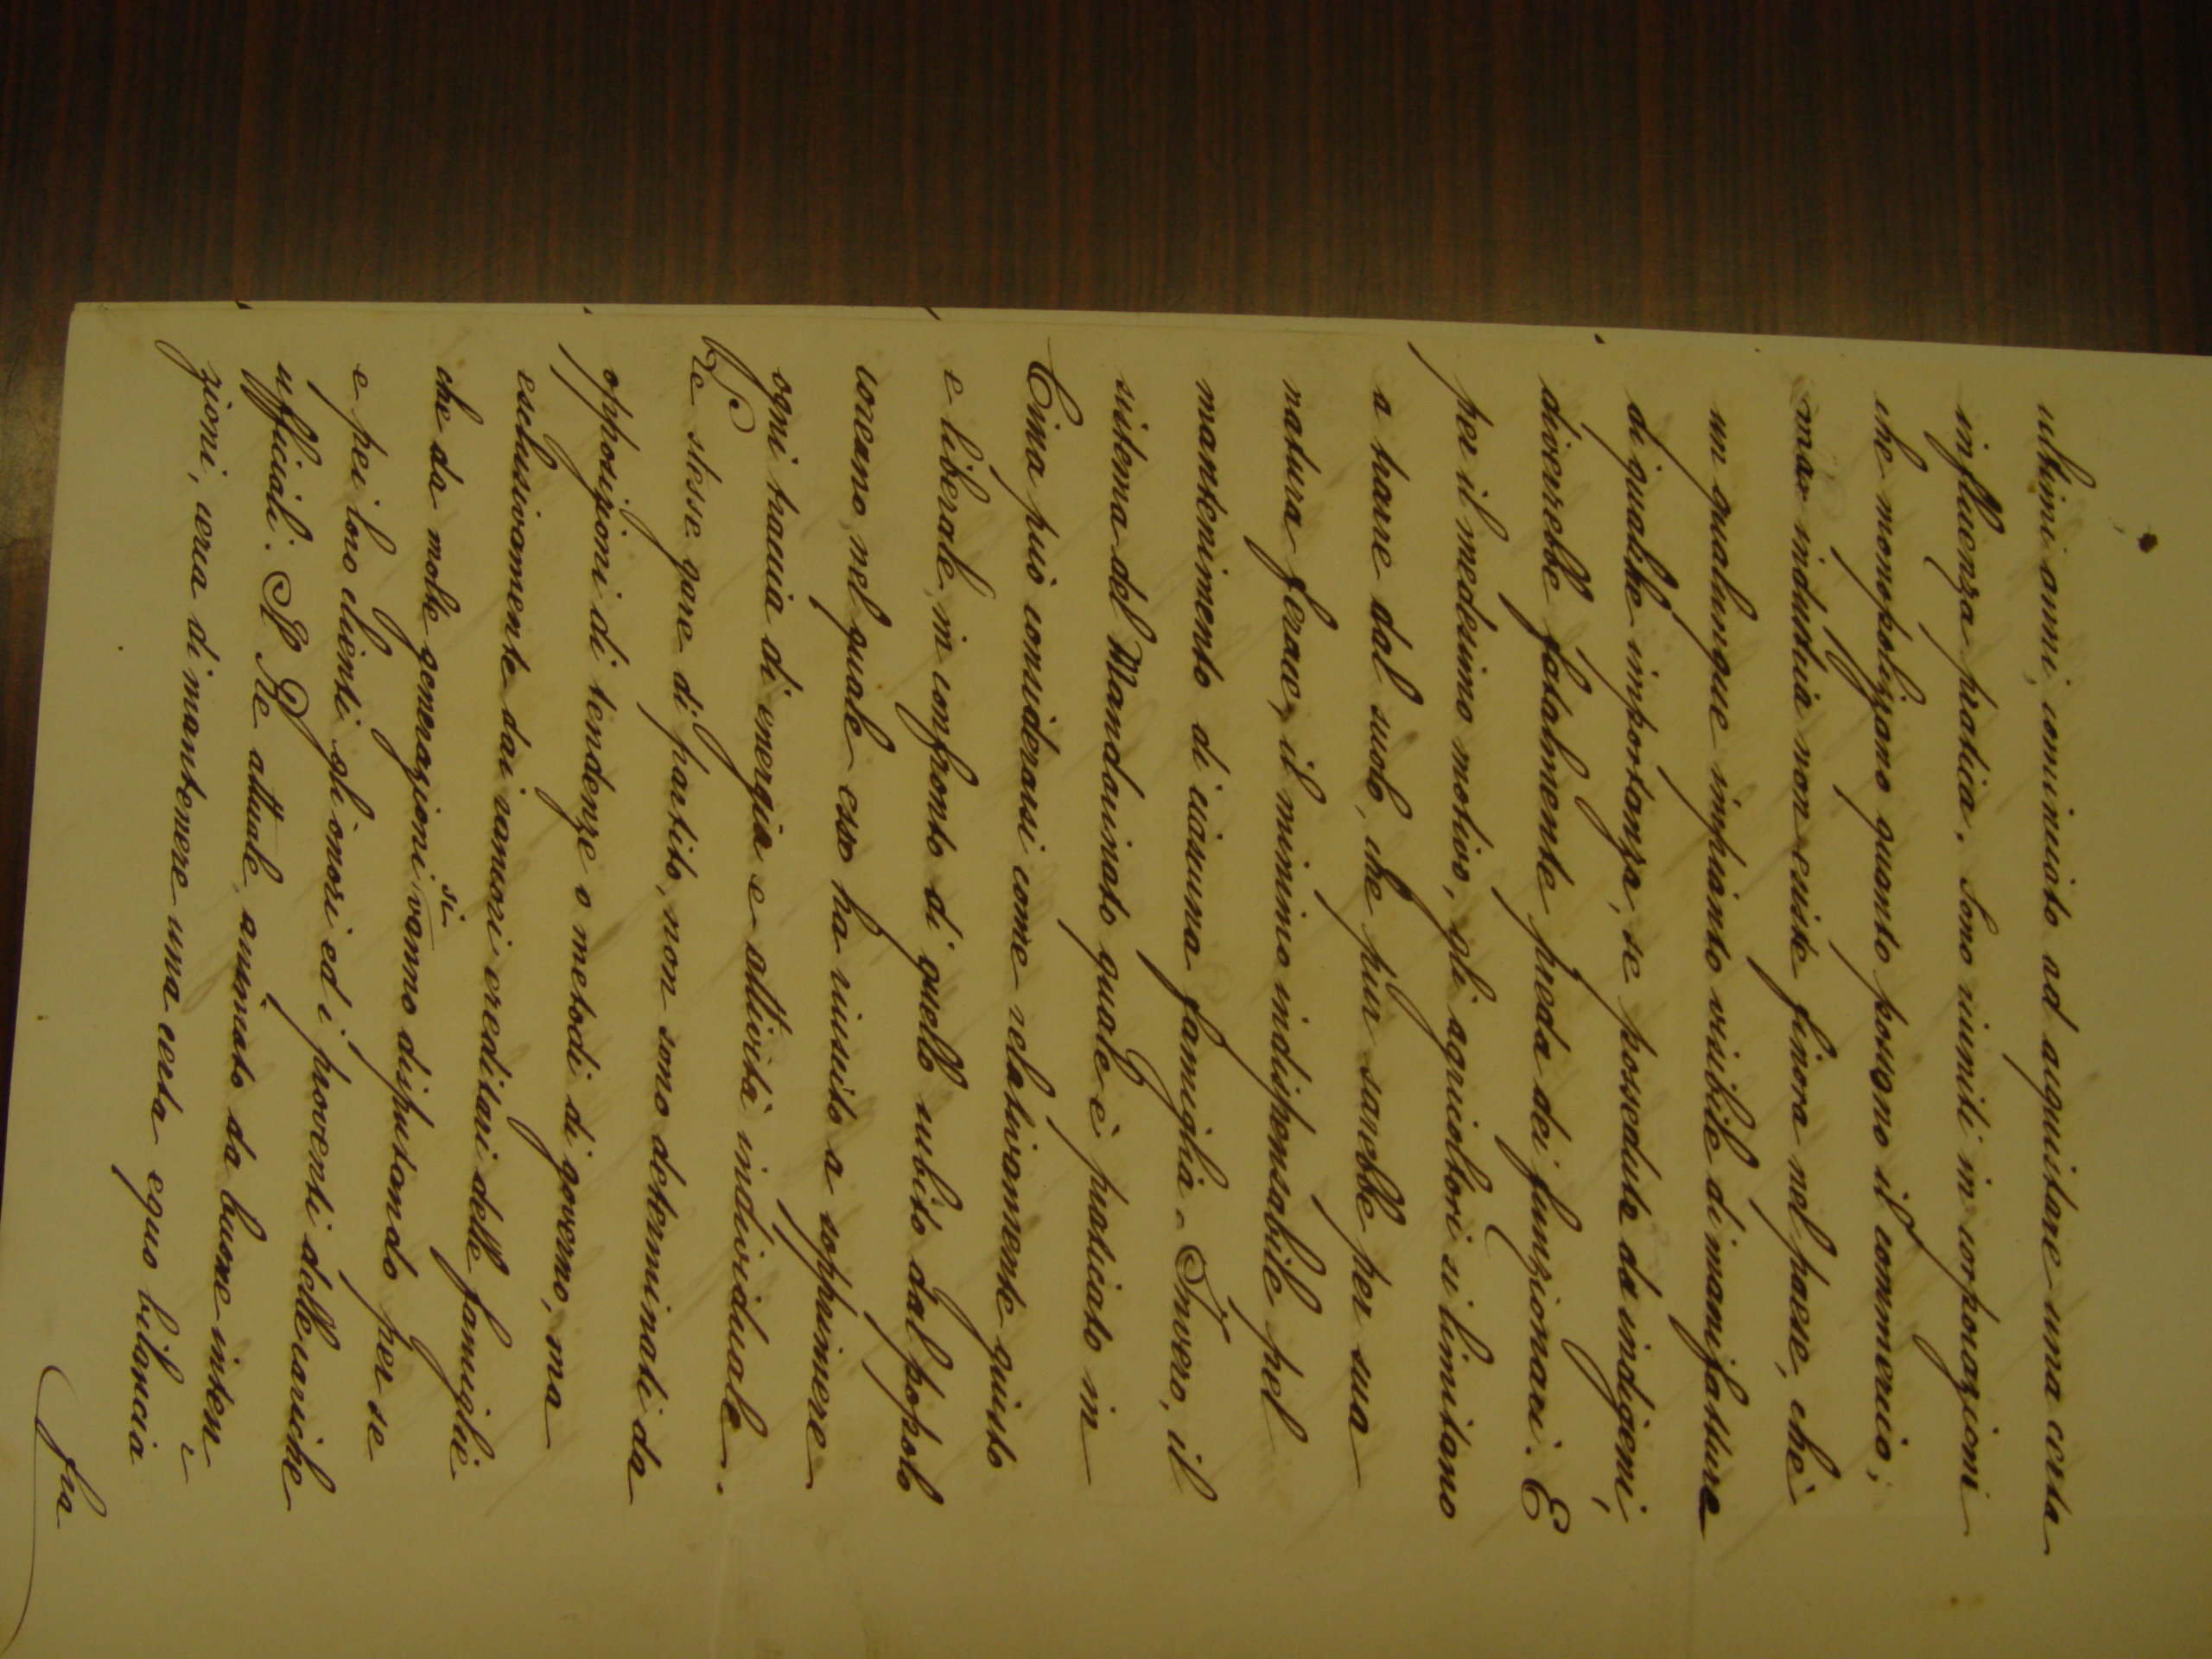 ultimi anni, cominciato ad acquistare una certa
influenza pratica. Sono riuniti in corporazioni
che monopolizzano quanto possono il commercio;
ma industria non esiste finora nel paese, chè
un qualunque impianto visibile di manifatture
di qualche importanza, se possedute da indigeni,
diverrebbe fatalmente preda dei funzionari. E
per il medesimo motivo, gli agricoltori si limitano
a trarre dal suolo, che pur sarebbe per sua
natura ferace, il minimo indispensabile pel
mantenimento di ciascuna famiglia. Invero, il
sistema del Mandarinato quale è praticato in
Cina può considerarsi come relativamente giusto
e liberale, in confronto di quello subito dal popolo
coreano, nel quale esso ha riuscito a sopprimere
ogni traccia di energia e attività individuale.
Le stesse gare di partito, non sono determinate da
opposizioni di tendenze o metodi di governo, ma
esclusivamente dai rancori ereditari delle famiglie
che da molte generazioni si vanno disputando per se
e pei loro clienti gli onori ed i proventi delle cariche
ufficiali. Il Re attuale, animato da buone inten-
zioni, cerca di mantenere una certa equa bilancia
fra